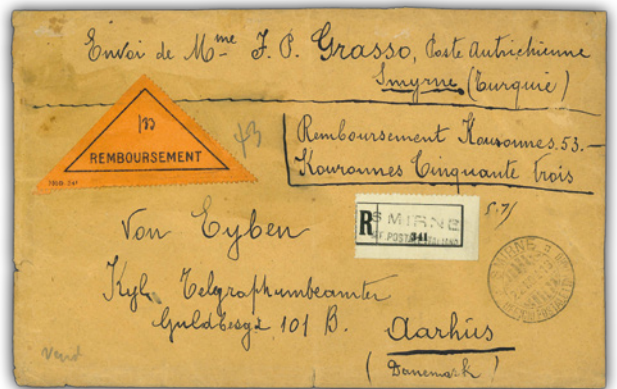 Envoi de Mme J. P. Grasso, Poste Autrichienne
Smyrne (Turquie)
REMBOURSEMENT
43
Remboursement Kouronnes 53.—
Kouronnes Cinquante trois
R
SMIRNE
UF. POSTALE ITALIANO
341
5.75
Von Eyben
Kgl. Telegraphumbeamter
Guldbesgz 101 B.
Aarhüs
(Danemark)
SMIRNE
Vend